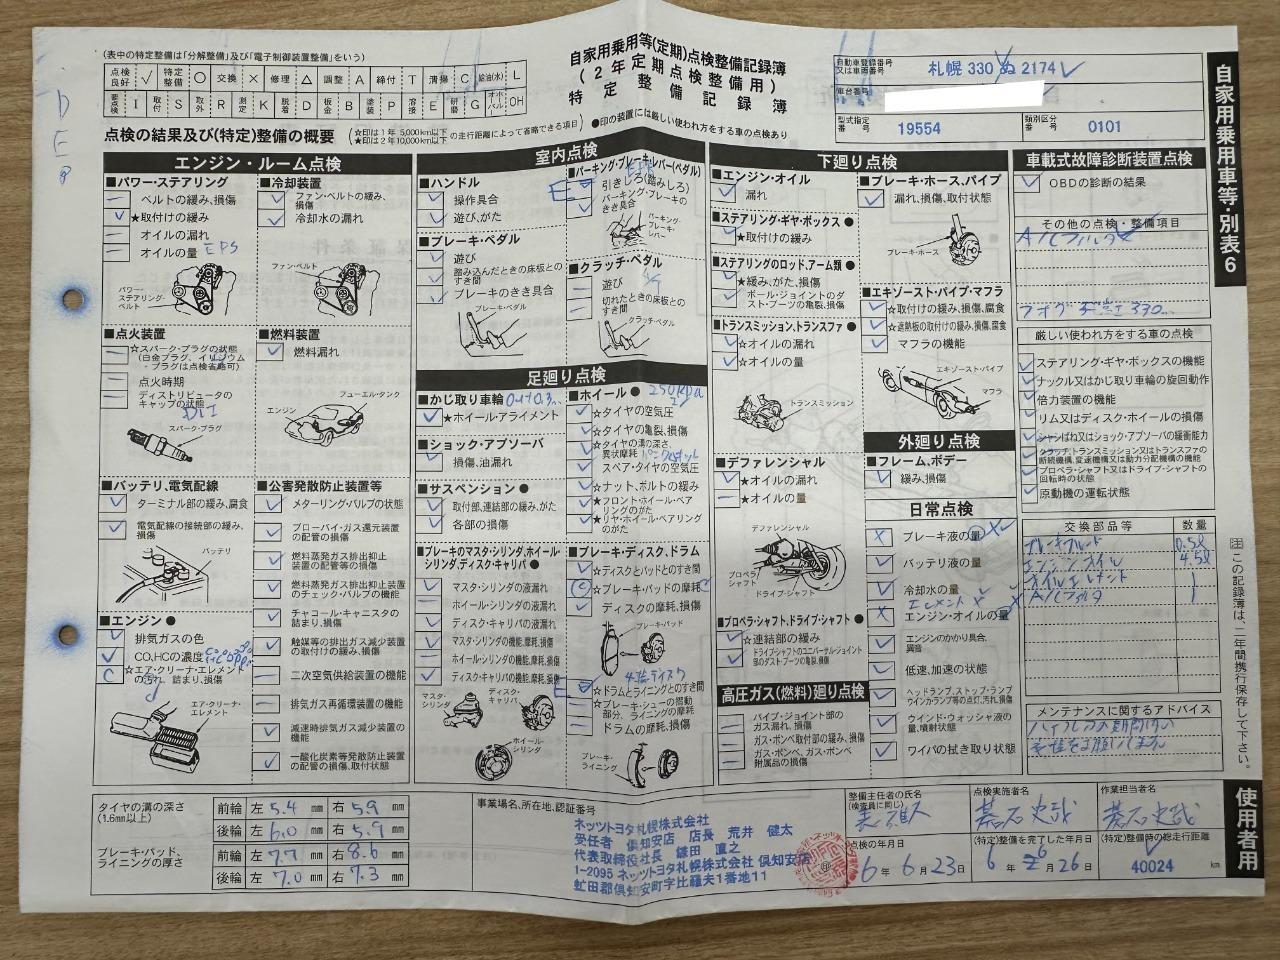 (表中の特定整備は「分解整備」及び「電子制御装置整備」をいう)
点検良好 レ 特定整備 ○ 交換 × 修理 △ 調整 A 締付 T 清掃 C 給油(水) L
要点検 I 取付 S 取外 R 測定 K 脱着 D 板金 B 塗装 P 溶接 E 研磨 G オーバーホール OH
自家用乗用等(定期)点検整備記録簿
(2年定期点検整備用)
特定整備記録簿
自動車登録番号又は車両番号 札幌 330 ぬ 2174
車台番号
型式指定番号 19554 類別区分番号 0101
自家用乗用車等・別表6
点検の結果及び(特定)整備の概要
(☆印は1年 5,000km以下 ★印は2年10,000km以下 の走行距離によって省略できる項目)
●印の装置には厳しい使われ方をする車の点検あり
エンジン・ルーム点検
■パワー・ステアリング
ベルトの緩み、損傷
★取付けの緩み
オイルの漏れ
オイルの量 EPS
パワー・ステアリング・ベルト
■冷却装置
ファン・ベルトの緩み、損傷
冷却水の漏れ
ファン・ベルト
■点火装置
☆スパーク・プラグの状態
(白金プラグ、イリジウム・プラグは点検省略可)
点火時期
ディストリビュータのキャップの状態
DLI
スパーク・プラグ
■燃料装置
燃料漏れ
フューエル・タンク
エンジン
■バッテリ、電気配線
ターミナル部の緩み、腐食
電気配線の接続部の緩み、損傷
バッテリ
■エンジン ●
排気ガスの色
CO、HCの濃度
☆エア・クリーナ・エレメントの汚れ、詰まり、損傷
エア・クリーナ・エレメント
■公害発散防止装置等
メターリング・バルブの状態
ブローバイ・ガス還元装置の配管の損傷
燃料蒸発ガス排出抑止装置の配管等の損傷
燃料蒸発ガス排出抑止装置のチェック・バルブの機能
チャコール・キャニスタの詰まり、損傷
触媒等の排出ガス減少装置の取付けの緩み、損傷
二次空気供給装置の機能
排気ガス再循環装置の機能
減速時排気ガス減少装置の機能
一酸化炭素等発散防止装置の配管の損傷、取付状態
室内点検
■ハンドル
操作具合
遊び、がた
■ブレーキ・ペダル
遊び
踏み込んだときの床板とのすき間
ブレーキのきき具合
ブレーキ・ペダル
■パーキング・ブレーキ・レバー(ペダル)
引きしろ(踏みしろ)
パーキング・ブレーキのきき具合
パーキング・ブレーキ・レバー
■クラッチ・ペダル
遊び
切れたときの床板とのすき間
クラッチ・ペダル
足廻り点検
■かじ取り車輪
★ホイール・アライメント
■ショック・アブソーバ
損傷、油漏れ
■サスペンション ●
取付部、連結部の緩み、がた
各部の損傷
■ブレーキのマスタ・シリンダ、ホイール・シリンダ、ディスク・キャリパ ●
マスタ・シリンダの液漏れ
ホイール・シリンダの液漏れ
ディスク・キャリパの液漏れ
マスタ・シリンダの機能、摩耗、損傷
ホイール・シリンダの機能、摩耗、損傷
ディスク・キャリパの機能、摩耗、損傷
マスタ・シリンダ
ディスク・キャリパ
ホイール・シリンダ
■ホイール ● 250kpa
☆タイヤの空気圧
☆タイヤの亀裂、損傷
☆タイヤの溝の深さ、異状摩耗
スペア・タイヤの空気圧
☆ナット、ボルトの緩み
★フロント・ホイール・ベアリングのがた
★リヤ・ホイール・ベアリングのがた
■ブレーキ・ディスク、ドラム
☆ディスクとパッドとのすき間
☆ブレーキ・パッドの摩耗
ディスクの摩耗、損傷
ブレーキ・パッド
4輪ディスク
☆ドラムとライニングとのすき間
☆ブレーキ・シューの摺動部分、ライニングの摩耗
ドラムの摩耗、損傷
ブレーキ・ライニング
下廻り点検
■エンジン・オイル
漏れ
■ステアリング・ギヤ・ボックス ●
★取付けの緩み
■ステアリングのロッド、アーム類 ●
★緩み、がた、損傷
ボール・ジョイントのダスト・ブーツの亀裂、損傷
■トランスミッション、トランスファ ●
☆オイルの漏れ
☆オイルの量
トランスミッション
■デファレンシャル
☆オイルの漏れ
☆オイルの量
デファレンシャル
プロペラ・シャフト
ドライブ・シャフト
■プロペラ・シャフト、ドライブ・シャフト ●
☆連結部の緩み
ドライブ・シャフトのユニバーサル・ジョイント部のダスト・ブーツの亀裂、損傷
高圧ガス(燃料)廻り点検
パイプ・ジョイント部のガス漏れ、損傷
ガス・ボンベ取付部の緩み、損傷
ガス・ボンベ、ガス・ボンベ附属品の損傷
■ブレーキ・ホース、パイプ
漏れ、損傷、取付状態
ブレーキ・ホース
■エキゾースト・パイプ・マフラ
☆取付けの緩み、損傷、腐食
☆遮熱板の取付けの緩み、損傷、腐食
マフラの機能
エキゾースト・パイプ
マフラ
外廻り点検
■フレーム、ボデー
緩み、損傷
日常点検
ブレーキ液の量
バッテリ液の量
冷却水の量
エレメント
エンジン・オイルの量
エンジンのかかり具合、異音
低速、加速の状態
ヘッドランプ、ストップ・ランプ、ウインカ・ランプ等の点灯、汚れ、損傷
ウインド・ウォッシャ液の量、噴射状態
ワイパの拭き取り状態
車載式故障診断装置点検
OBDの診断の結果
その他の点検・整備項目
A/Cフィルタ
厳しい使われ方をする車の点検
ステアリング・ギヤ・ボックスの機能
ナックル又はかじ取り車輪の旋回動作
倍力装置の機能
リム又はディスク・ホイールの損傷
シャシばね又はショック・アブソーバの緩衝能力
クラッチ、トランスミッション又はトランスファの断続機構、変速機構又は動力分配機構の機能
プロペラ・シャフト又はドライブ・シャフトの回転時の振れ
原動機の運転状態
交換部品等 数量
ブレーキフルード 0.5ℓ
エンジンオイル 4.5ℓ
オイルエレメント 1
A/Cフィルタ 1
メンテナンスに関するアドバイス
注 この記録簿は、二年間携行保存して下さい。
使用者用
タイヤの溝の深さ(1.6mm以上)
前輪 左 5.4 mm 右 5.9 mm
後輪 左 6.0 mm 右 5.9 mm
ブレーキ・パッド、ライニングの厚さ
前輪 左 7.7 mm 右 8.6 mm
後輪 左 7.0 mm 右 7.3 mm
事業場名、所在地、認証番号
ネッツトヨタ札幌株式会社
受任者 倶知安店 店長 荒井 健太
代表取締役社長 鎌田 直之
1-2095 ネッツトヨタ札幌株式会社 倶知安店
虻田郡倶知安町字比羅夫1番地11
整備主任者の氏名(検査員に同じ)
点検実施者名
作業担当者名
点検の年月日 6 年 6 月 23 日
(特定)整備を完了した年月日 6 年 6 月 26 日
(特定)整備時の総走行距離 40024 km